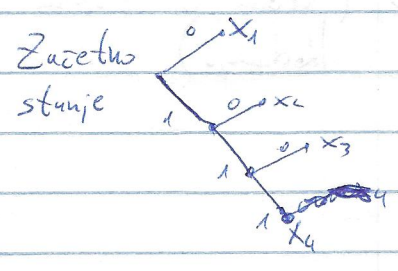 Začetno
stanje
0 x1
1 0 x2
1 0 x3
1 x4